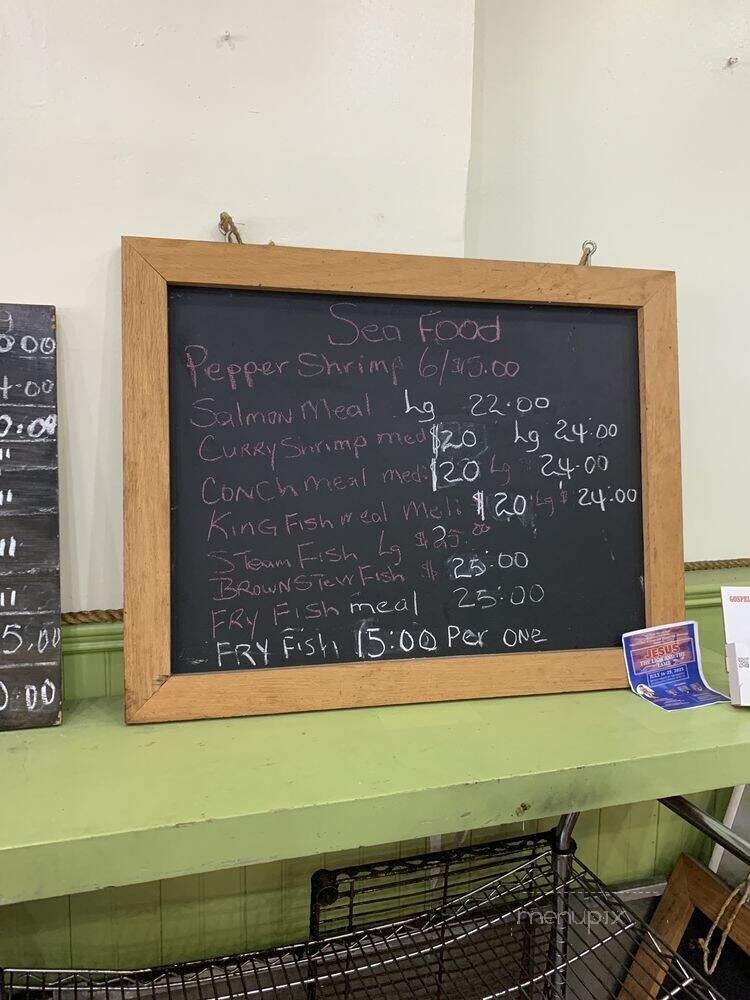 Sea Food
Pepper Shrimp 6/$15.00
Salmon Meal Lg 22.00
Curry Shrimp med $20 Lg 24:00
Conch meal med: $20 Lg 24.00
King Fish meal Med: $20 Lg $ 24:00
Steam Fish Lg $25.00
Brown Stew Fish $ 25:00
Fry Fish meal 25:00
Fry Fish 15:00 Per one
5.00
0:00
JESUS
THE LION AND THE
LAMB
GOSPEL
menupix